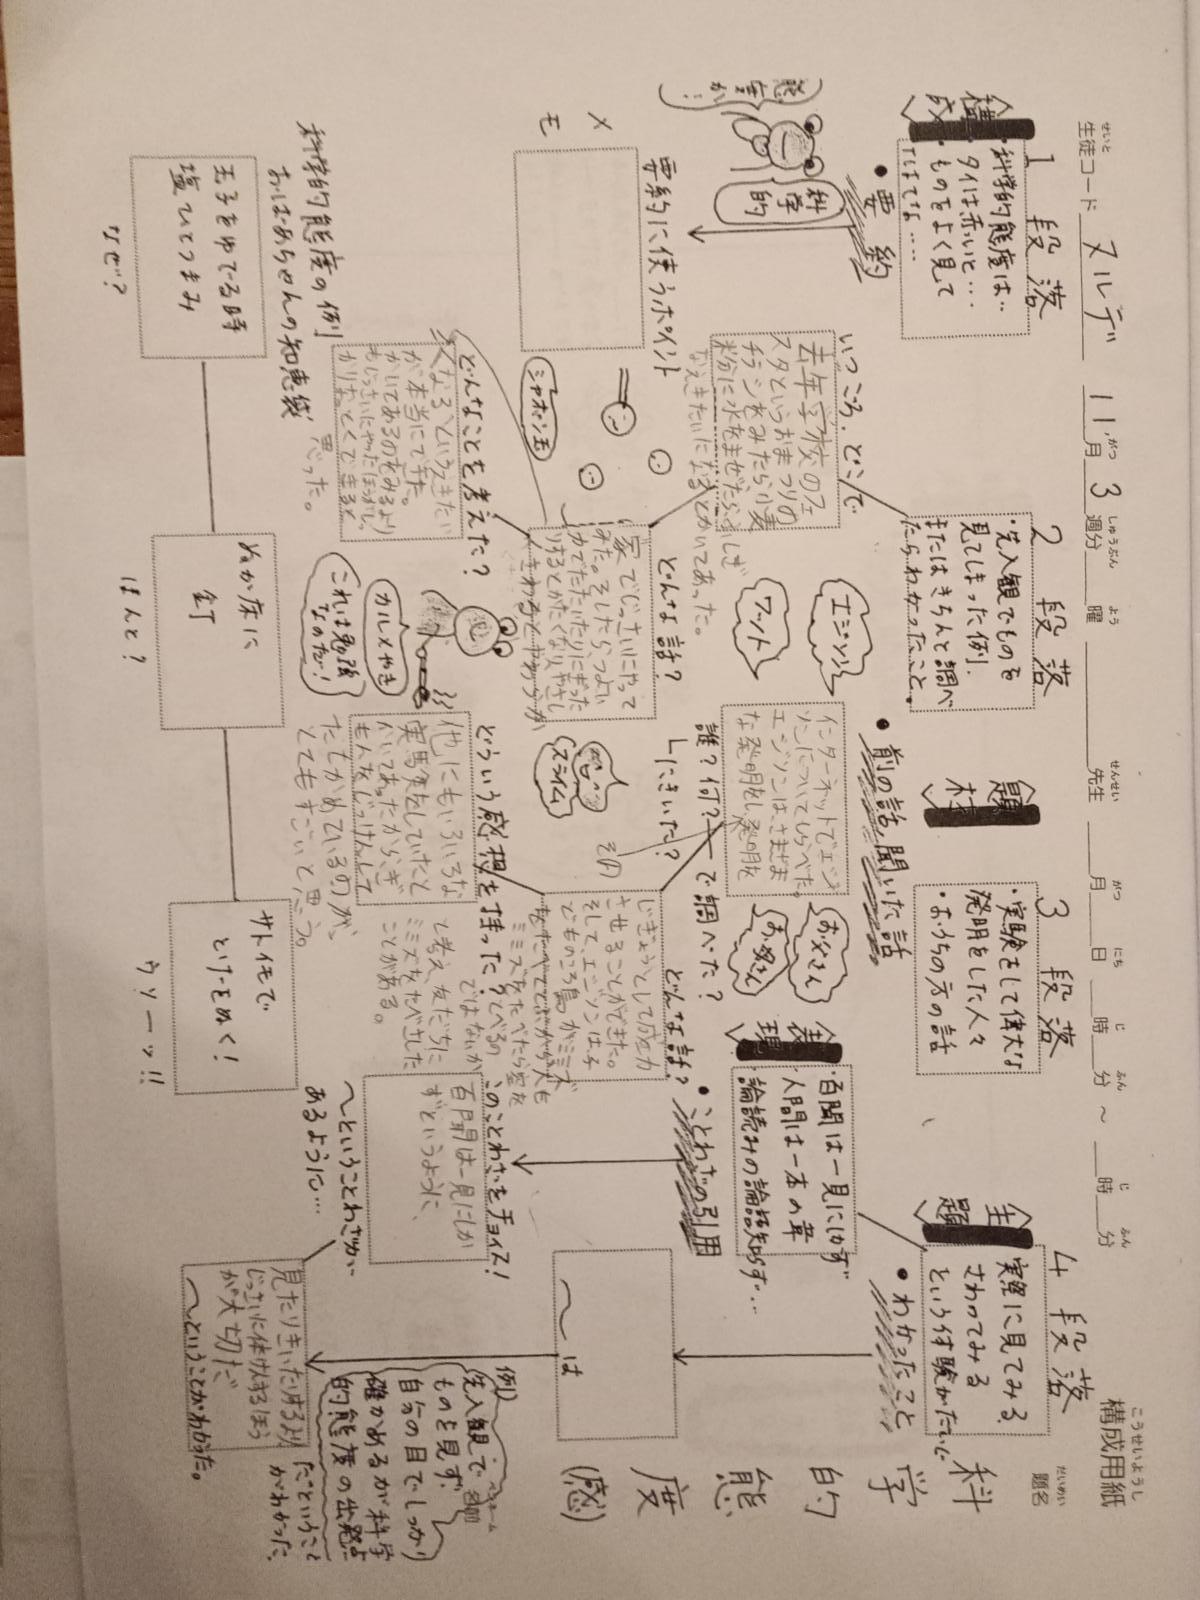 構成用紙
こうせいようし
題名
だいめい
科学的態度(感)
生徒コード ヌルデ 11月3週分 曜 先生 月 日 時 分 ~ 時 分
せいと
がつ
しゅうぶん
よう
せんせい
がつ
にち
じ
ふん
じ
ふん
1段落
構成
・科学的態度は…
タイは赤いと…
・ものをよく見て
・要約
科学的
態度が…
要約に使うポイント
メモ
2段落
・先入観でものを
見てしまった例.
またはきちんと調べ
たらわかったこと.
いつころ.どこで
去年学校のフェ
スタというおまつりの
チラシをみたら小麦
粉に水をまぜたらふしぎ
なえきたいになるとかいてあった。
どんな話?
家でじっさいにやって
みた。そしたら、つよい
力でたたいたりにぎった
りするとかたくなり、やさし
くさわるとやわらか
くなるというえきたい
が本当にできた。
かいてあるのをみるより
もじっさいにやったほうがしっ
かりなっとくできると
思った。
どんなことを考えた?
シャボン玉
カルメやき
これは勉強
なのだ!
スライム
エジソン
ワット
・前の話、聞いた話
題材
3段落
・実験をして偉大な
発明をした人々
・おうちの方の話
お父さん
お母さん
誰?何?で調べた?
にきいた?
インターネットでエジ
ソンについてしらべた。
エジソンは、さまざま
な発明をし、発明を
どんな話?
じぎょうとして成功
させることができた。
そして、エジソンは子
どものころ鳥がミミズ
ミミズをたべたら空を
とべるの
ではないか
て考え、友だちに
ミミズをたべさせた
ことがある。
どういう感想を持った?
他にもいろいろな
実験をしていたと
かいてあったから、ぎ
もんをじっけんして
たしかめているのが、
とてもすごいと思う。
表現
百聞は一見にしかず
人間は一本の葦
論語読みの論語知らず…
・ことわざの引用
このことわざをチョイス!
百聞は一見にしか
ずというように、
~ということわざが
あるように…
4段落
主題
実際に見てみる.
さわってみる
という体験がたいじ
・わかったこと
~は
見たりきいたりするより
じっさいに体けんするほう
が大切だ
~ということがわかった。
例)
先入観で
ものを見ず.
自分の目でしっかり
確かめるが科学
的態度の出発点
だということ
がわかった.
科学的態度の例
おばあちゃんの知恵袋
玉子をゆでる時
塩ひとつまみ
なぜ?
ぬか床に
釘
ほんと?
サトイモで
とげをぬく!
ウソーッ!!